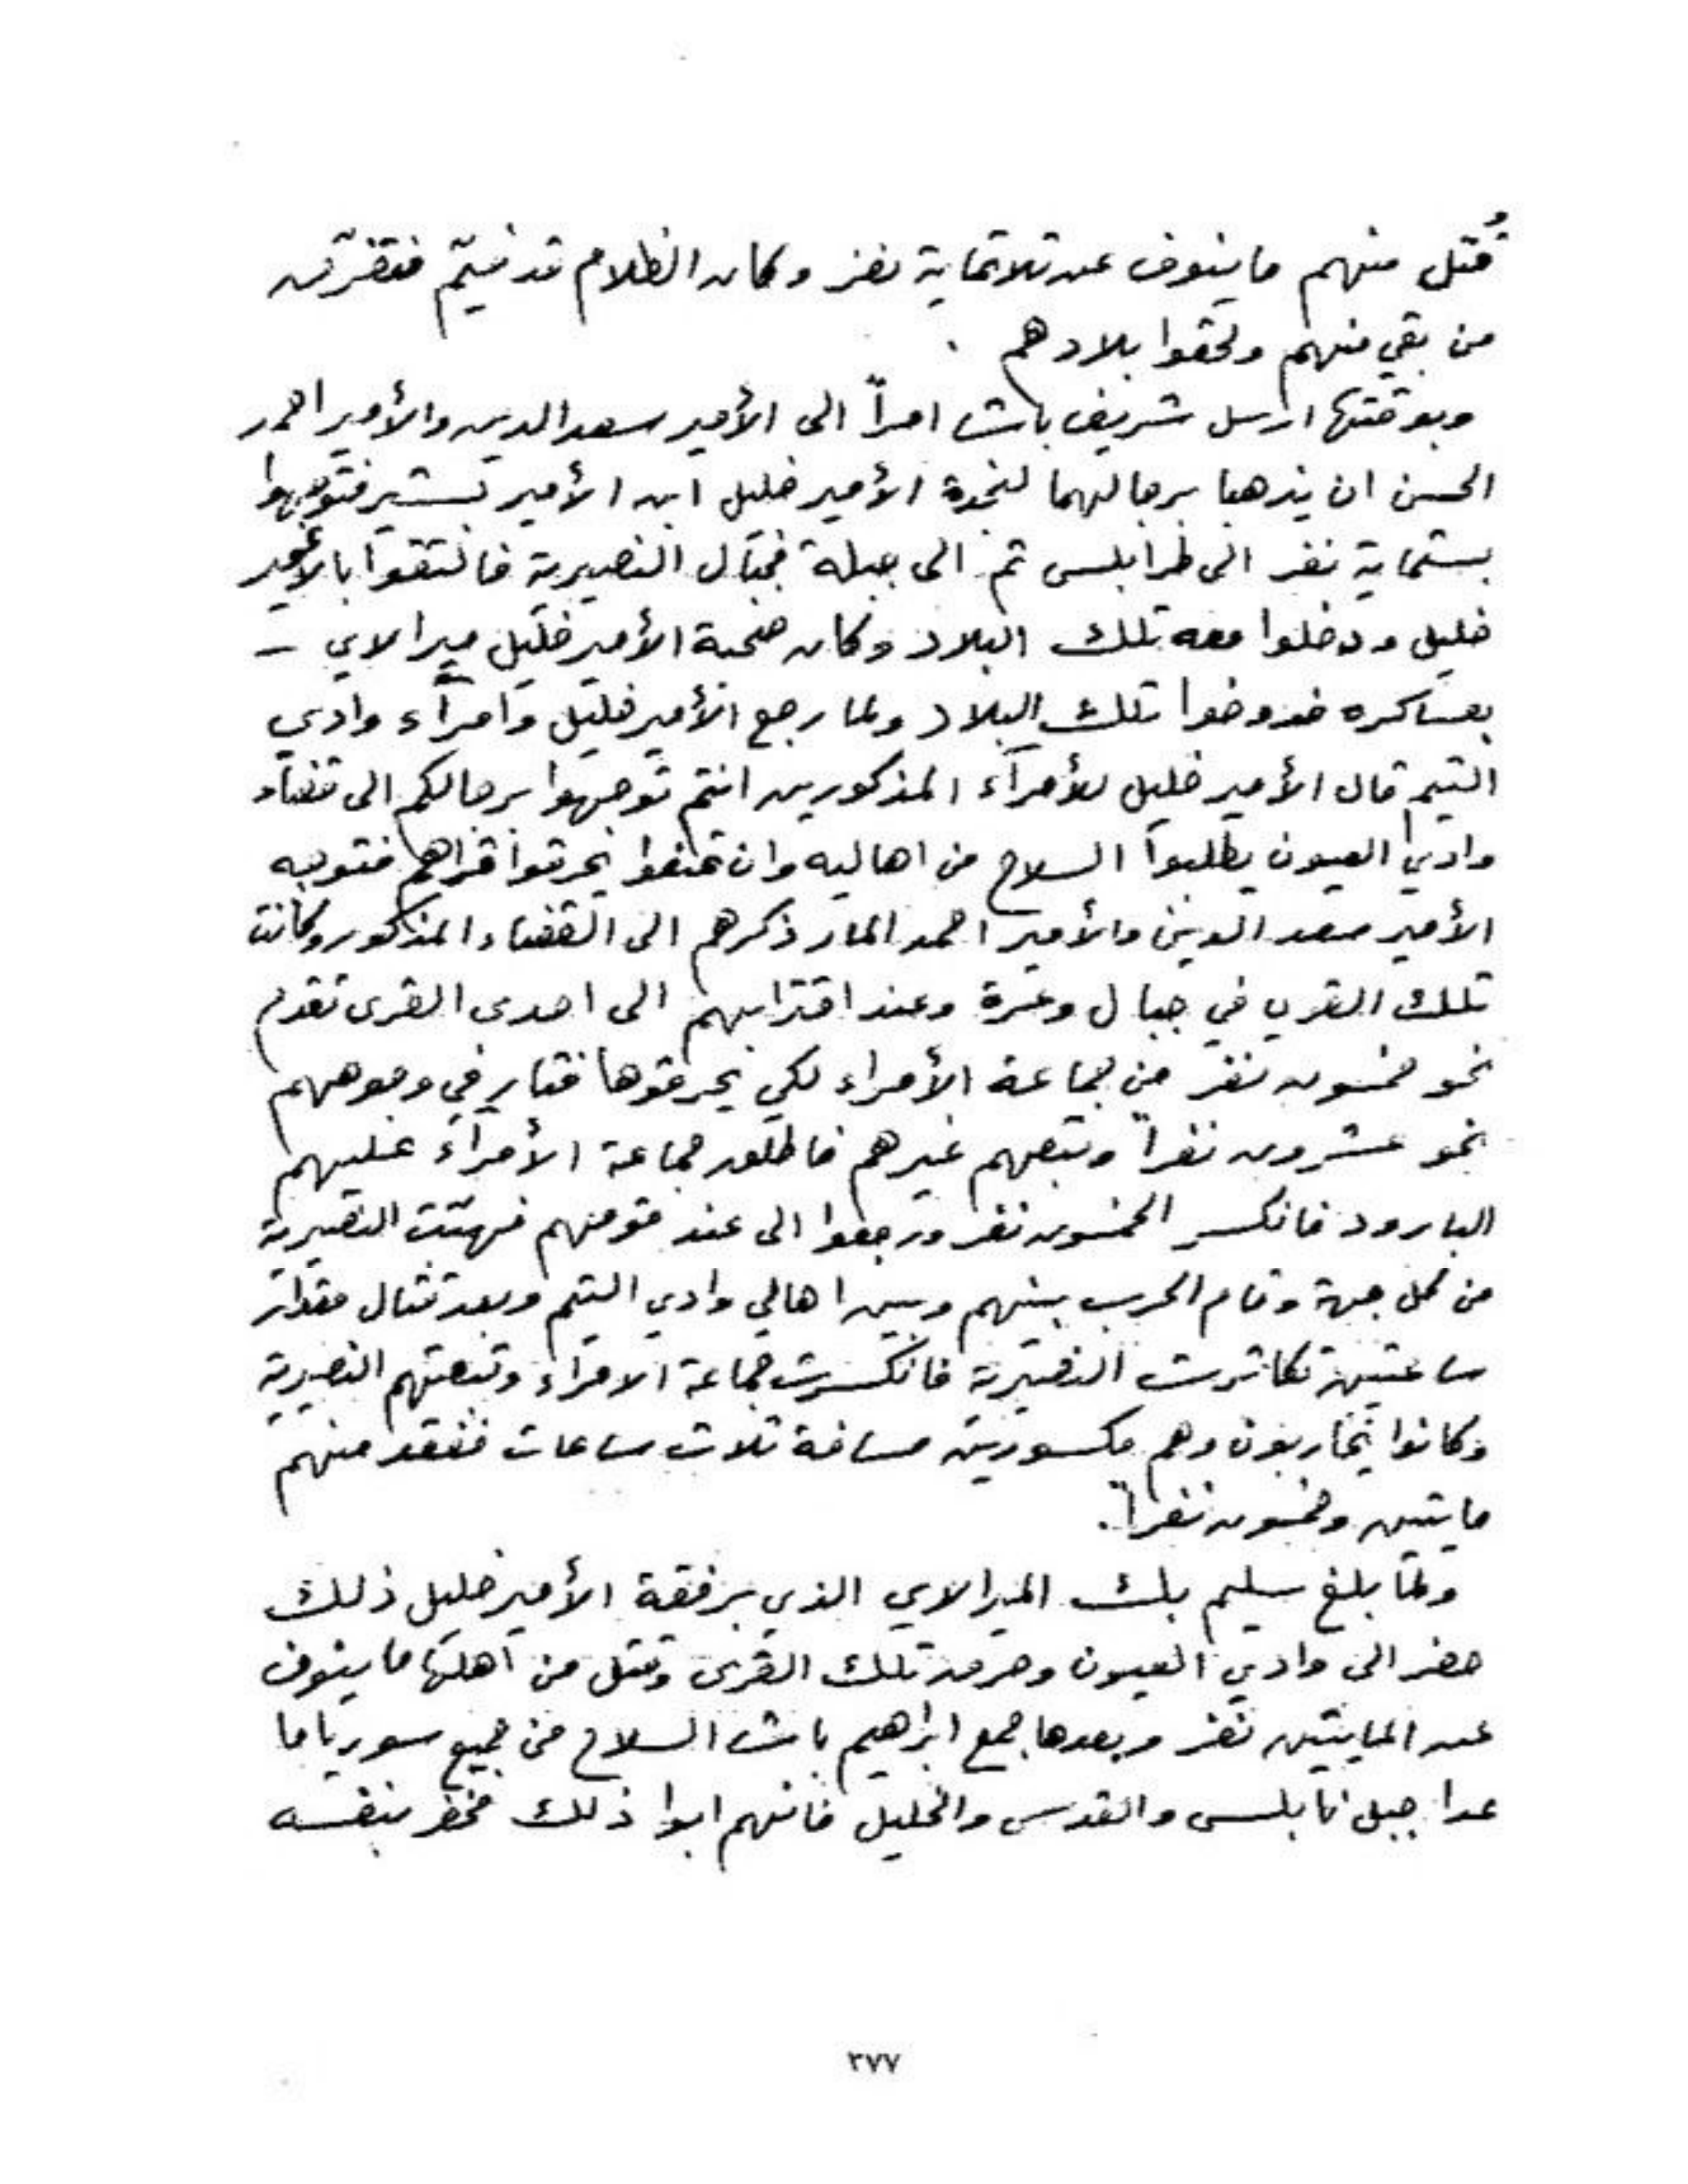 قُتل منهم ما ينوف عن ثلاثماية نفر وكان الظلام قد خيّم فتفرّق
من بقي منهم ولحقوا بلادهم .
وبوقتها ارسل شريف باشا امراً الى الأمير سعد الدين والأمير احمد
الحسن ان يذهبا برجالهما لنجدة الأمير خليل ابن الأمير بشير فتوجهوا
بستماية نفر الى طرابلس ثم الى جبلة فجبال النصيرية فالتقوا بالأمير
خليل ودخلوا معه تلك البلاد وكان صحبة الأمير خليل ميرالاي –
بعساكره فدوخوا تلك البلاد ولما رجع الأمير خليل وامرآء وادي
التيم قال الأمير خليل للأمرآء المذكورين انتم توجهوا برجالكم الى قضاء
وادي العيون يطلبوا السلاح من اهاليه وان تمنعوا يحرقوا قراهم فتوجه
الأمير سعد الدين والأمير احمد المار ذكرهم الى القضاء المذكور وكانت
تلك القرى في جبال وعرة وعند اقترابهم الى احدى القرى تقدم
نحو خمسون نفر من جماعة الأمراء لكي يحرقوها فثار في وجوههم
نحو عشرون نفراً وتبعهم غيرهم فاطلق جماعة الأمرآء عليهم
البارود فانكسر الخمسون نفر ورجعوا الى عند قومهم فهبّت النصيرية
من كل جهة وقام الحرب بينهم وبين اهالي وادي التيم وبعد قتال مقدار
ساعتين تكاثرت النصيرية فانكسرت جماعة الامراء وتبعتهم النصيرية
وكانوا يحاربون وهم مكسورين مسافة ثلاث ساعات ففقد منهم
مايتين وخمسون نفراً.
ولمّا بلغ سليم بك الميرالاي الذي برفقة الأمير خليل ذلك
حضر الى وادي العيون وحرق تلك القرى وقتل من اهلها ما ينوف
عن المايتين نفر وبعدها جمع ابراهيم باشا السلاح من جميع سوريا ما
عدا جبل نابلس والقدس والخليل فانهم ابوا ذلك فحضر بنفسه
٣٧٧